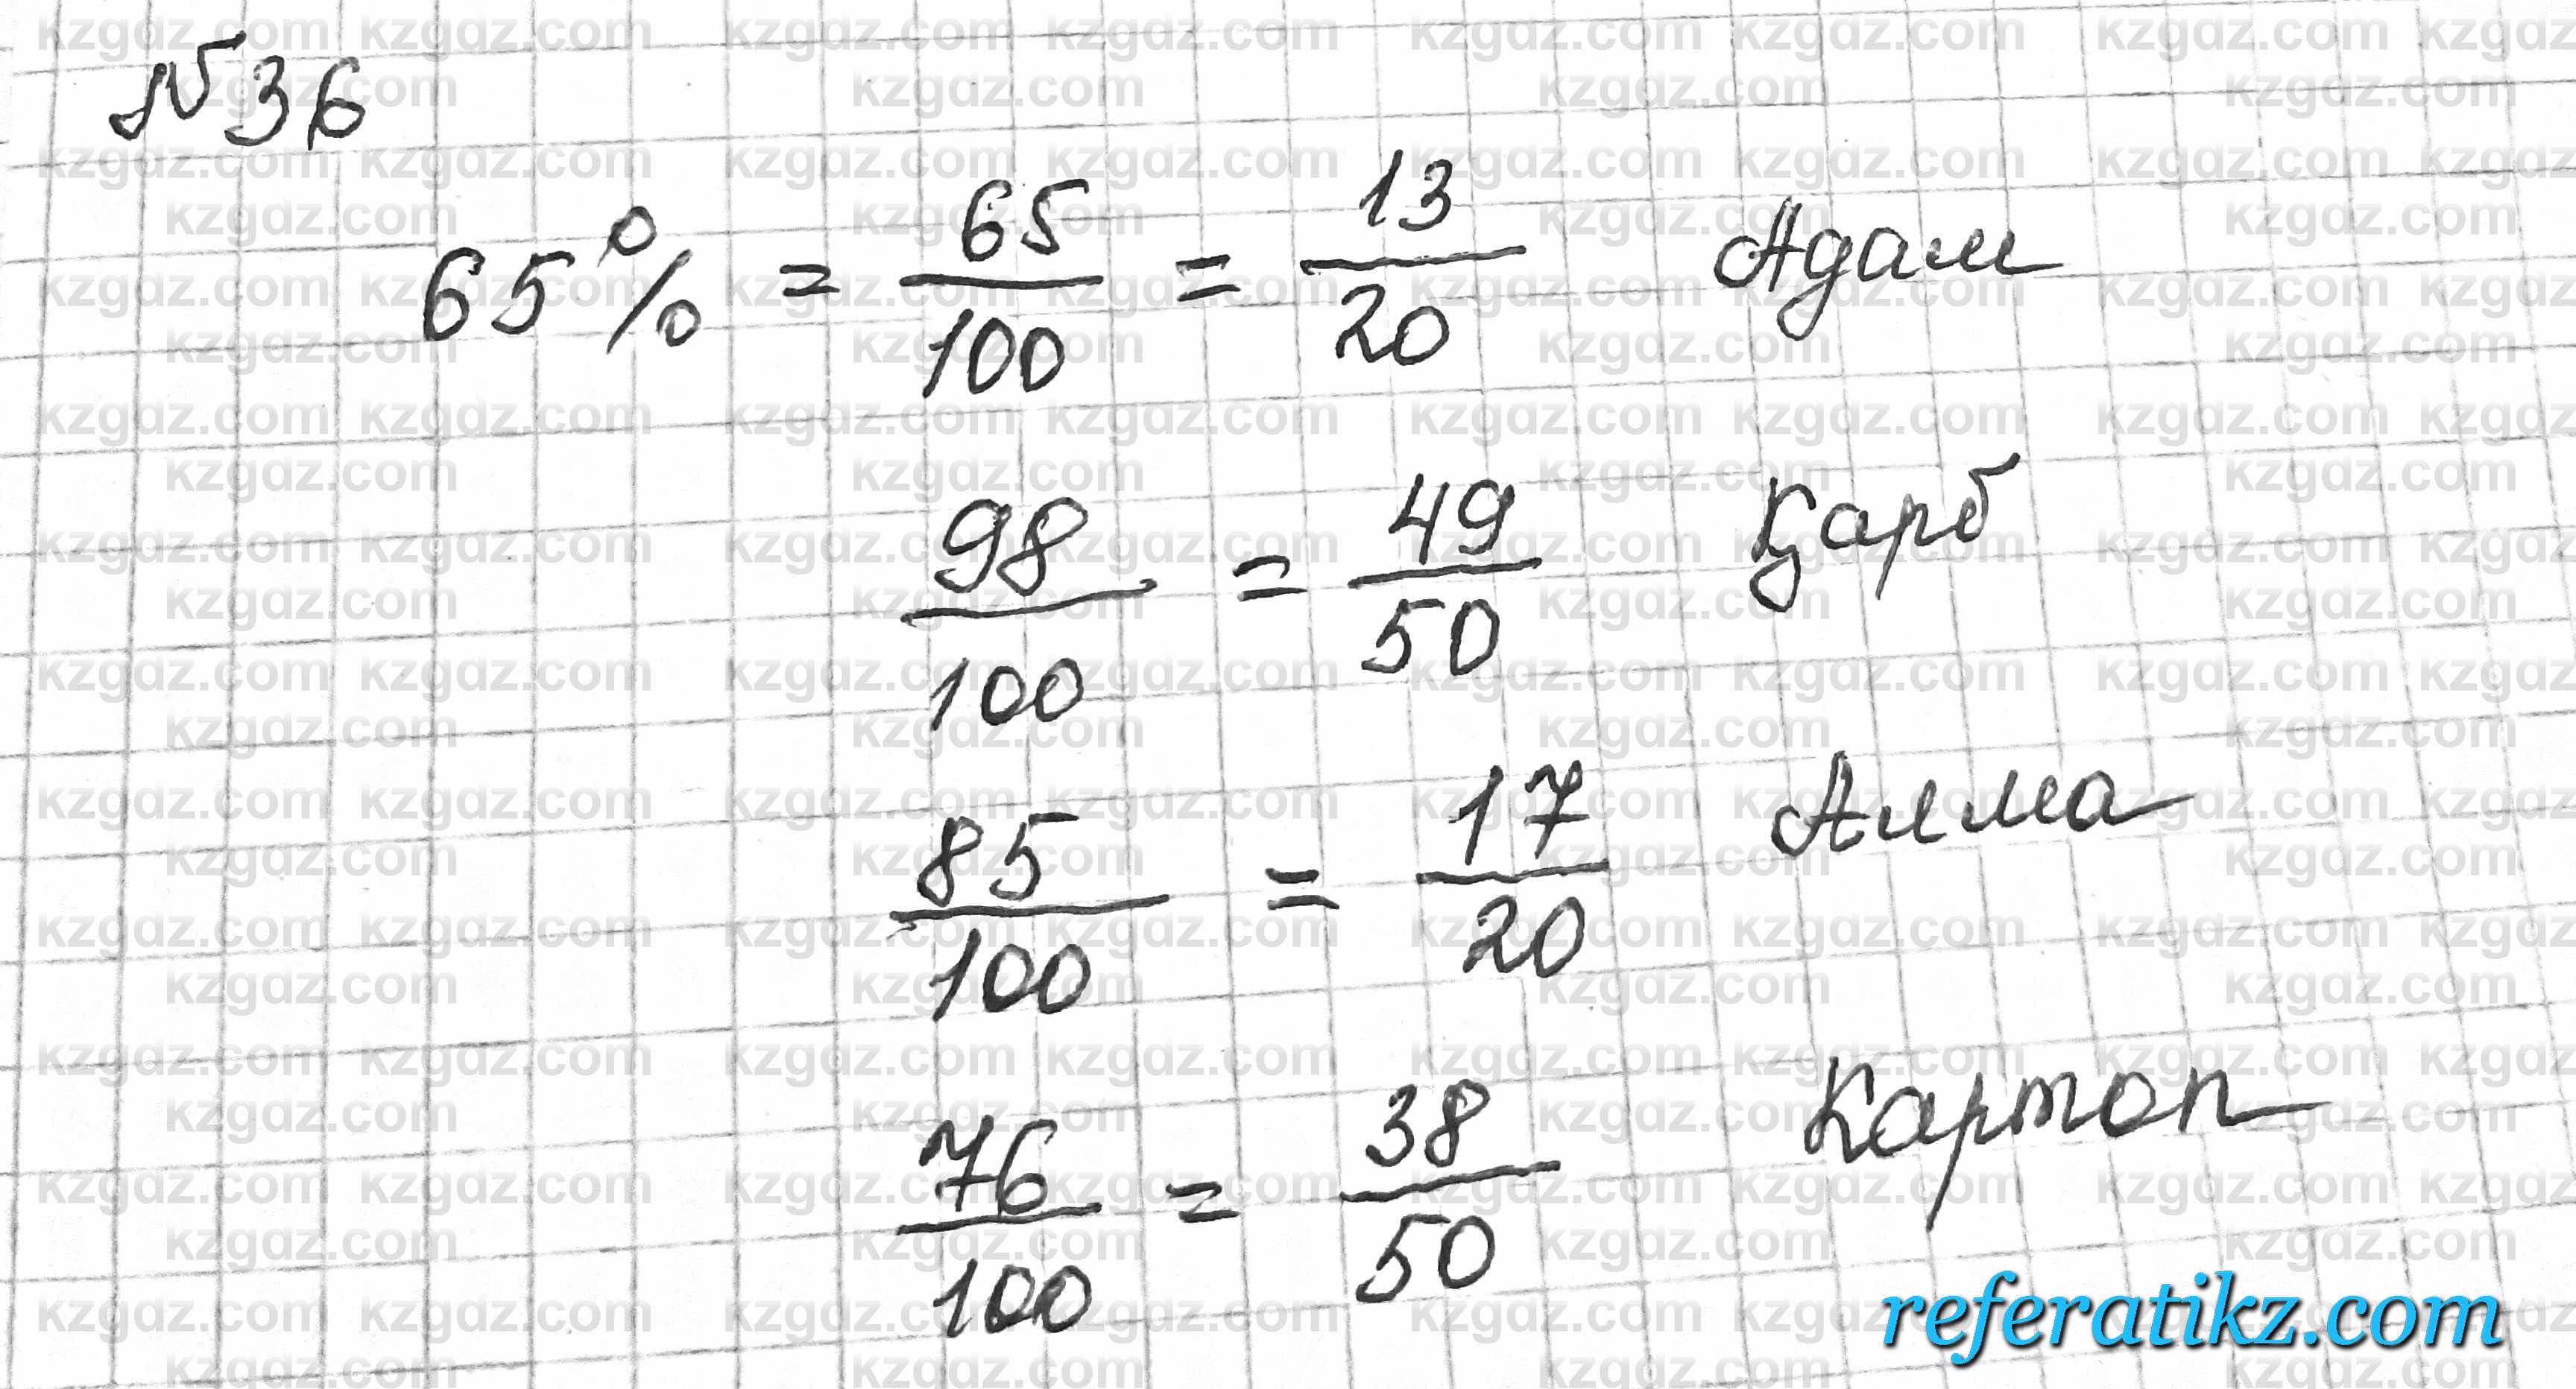 №36
65% = 65/100 = 13/20 Адам
98/100 = 49/50 Қарб
85/100 = 17/20 Алма
76/100 = 38/50 Картоп
referatikz.com
kzgdz.com